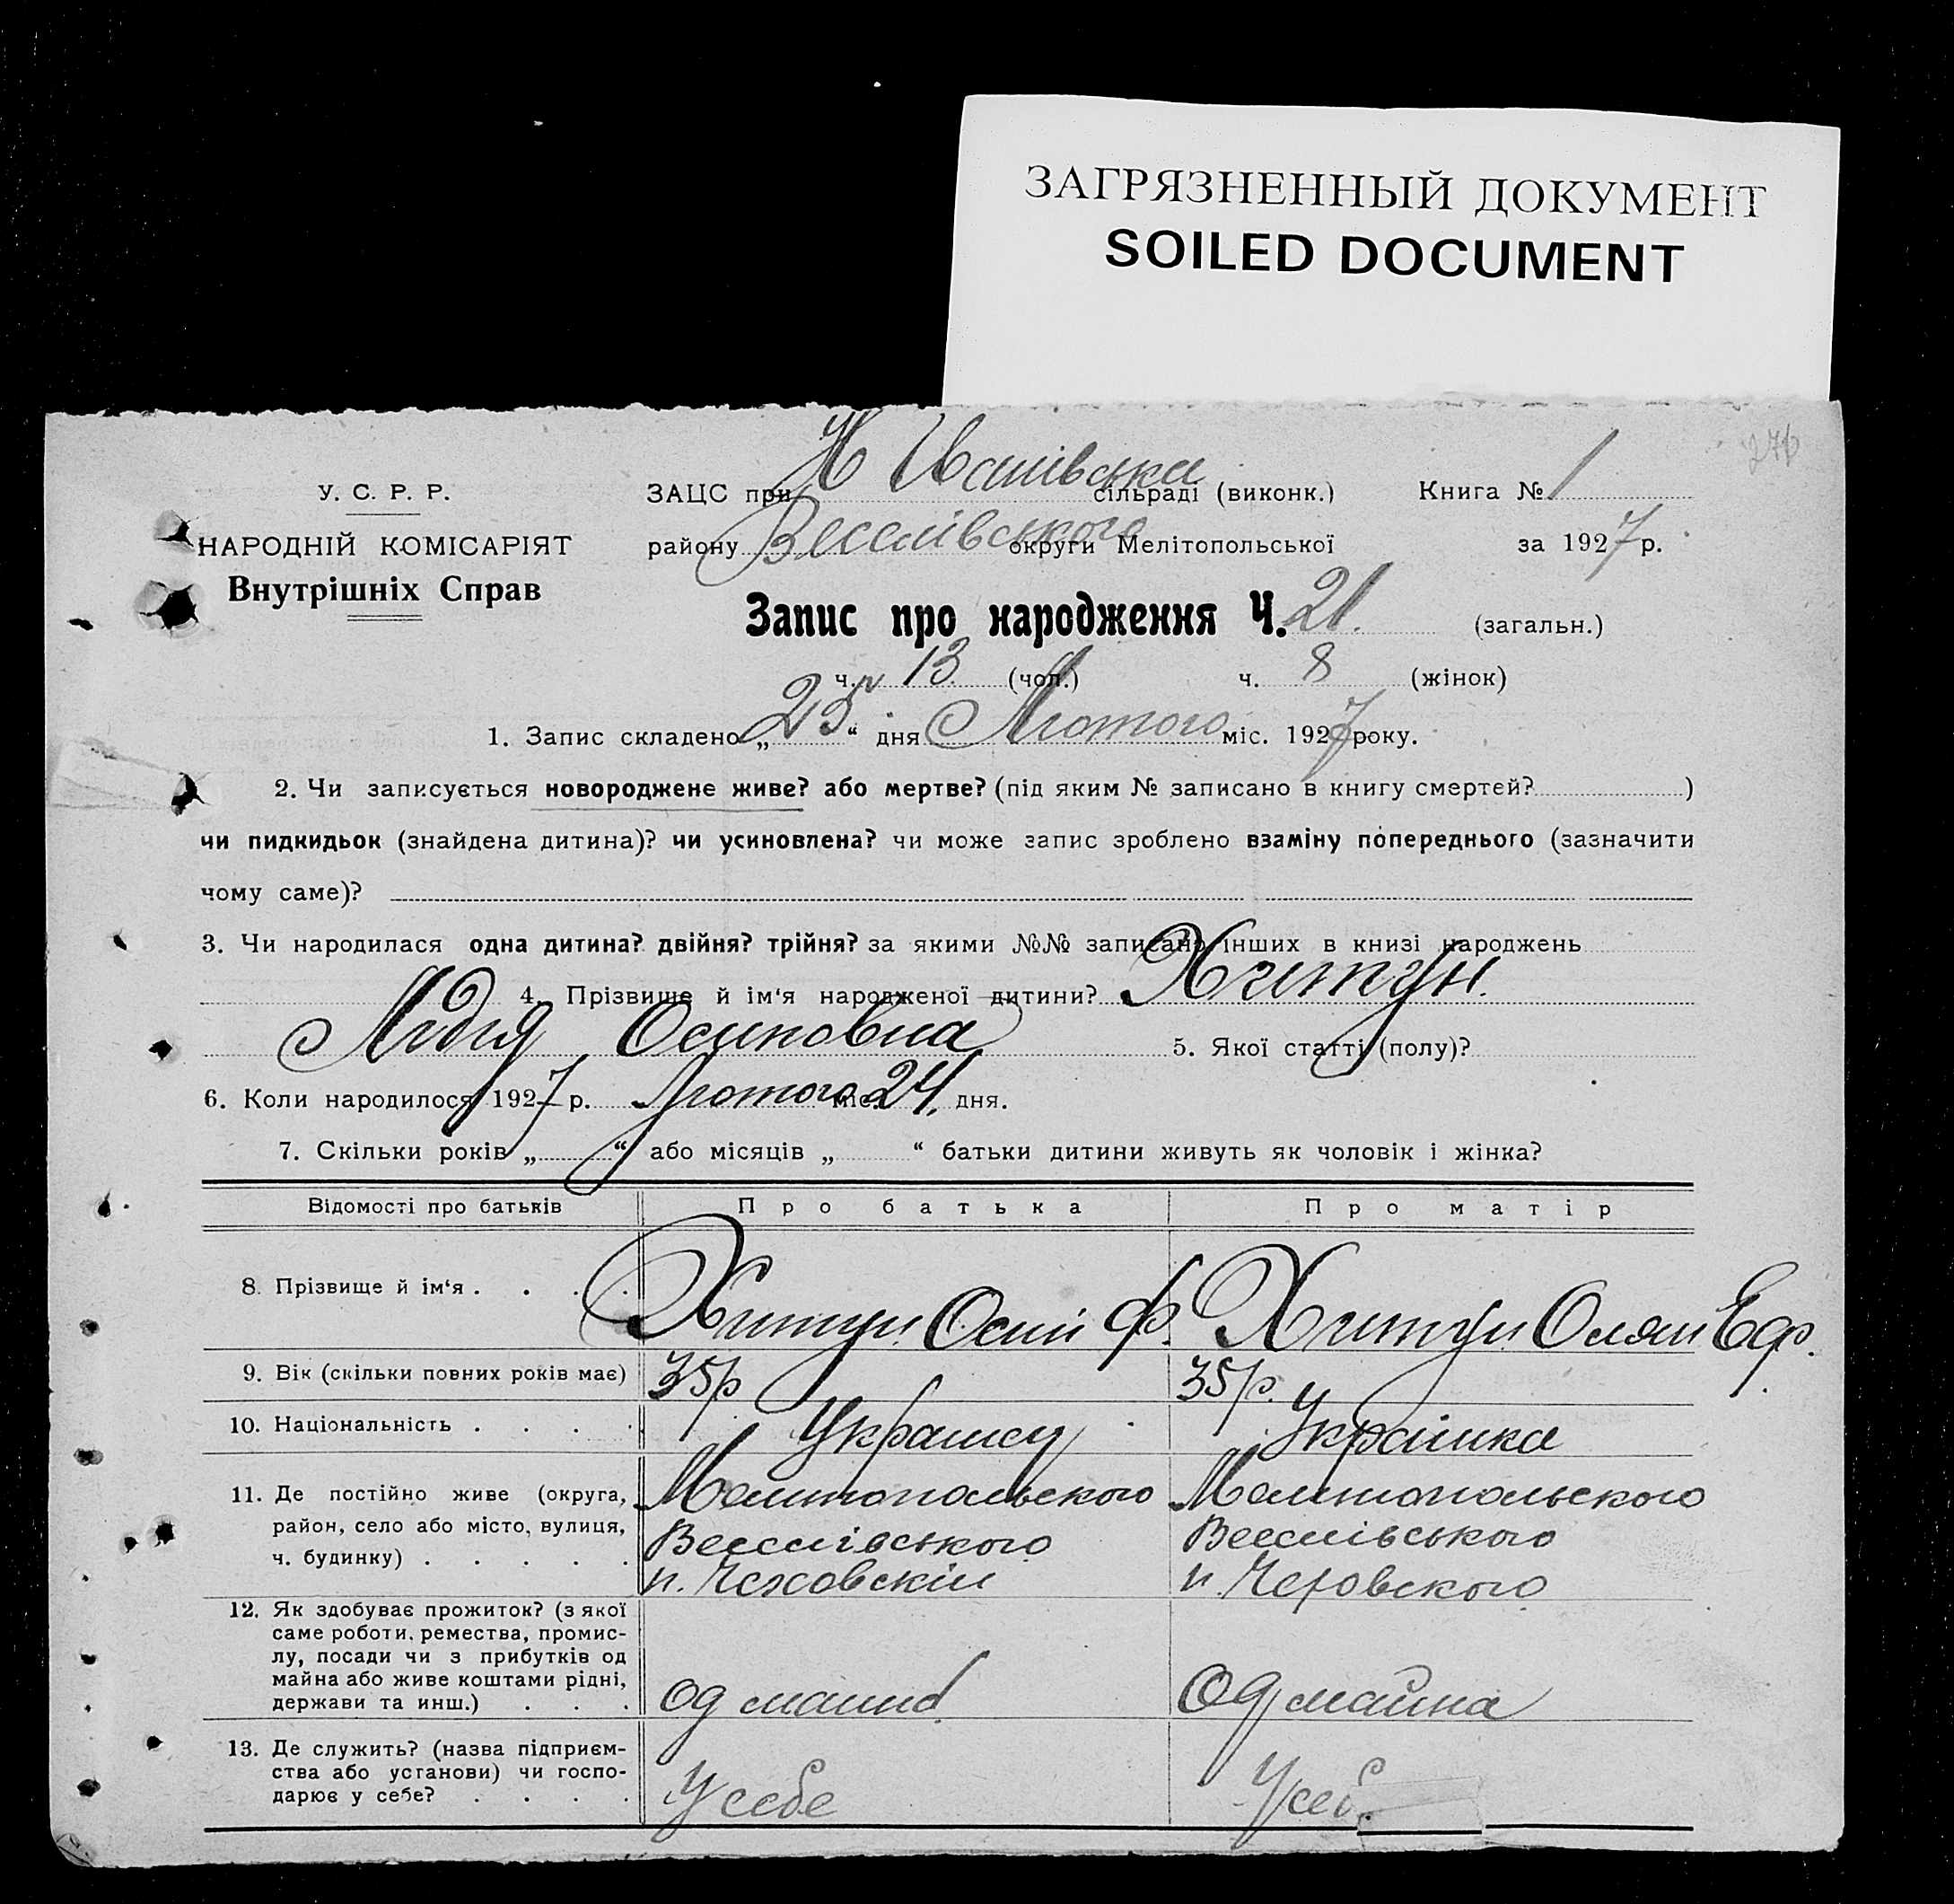 ЗАГРЯЗНЕННЫЙ ДОКУМЕНТ
SOILED DOCUMENT
276
У. С. Р. Р.
НАРОДНІЙ КОМІСАРІЯТ
Внутрішніх Справ
ЗАЦС при Н Іванівська сільраді (виконк.) Книга № 1
району Веселівського округи Мелітопольської за 1927 р.
Запис про народження Ч. 21. (загальн.)
ч. 13 (чол.) ч. 8 (жінок)
1. Запис складено „25“ дня Лютого міс. 1927 року.
2. Чи записується новороджене живе? або мертве? (під яким № записано в книгу смертей? )
чи пидкидьок (знайдена дитина)? чи усиновлена? чи може запис зроблено взаміну попереднього (зазначити
чому саме)?
3. Чи народилася одна дитина? двійня? трійня? за якими №№ записано інших в книзі народжень
4. Прізвище й ім‘я народженої дитини? Хитун.
Лидия Осиповна 5. Якої статті (полу)?
6. Коли народилося 1927 р. Лютого міс. 24, дня.
7. Скільки років „ “ або місяців „ “ батьки дитини живуть як чоловік і жінка?
Відомості про батьків Про батька Про матір
8. Прізвище й ім‘я . . . . Хитун Осип Ф. Хитун Еф.
9. Вік (скільки повних років має) 35 р 35 р.
10. Національність . . . . Украінец Украінка
11. Де постійно живе (округа, Мелитопольского Мелитопольского
район, село або місто, вулиця, Веселівського Веселівського
ч. будинку) . . . . . п. Чеховскій п. Чеховского
12. Як здобуває прожиток? (з якої
саме роботи, ремества, промис-
лу, посади чи з прибутків од
майна або живе коштами рідні,
держави та инш.) . . . од майна Од майна
13. Де служить? (назва підприєм-
ства або установи) чи госпо-
дарює у себе? . . . . У себе У себе